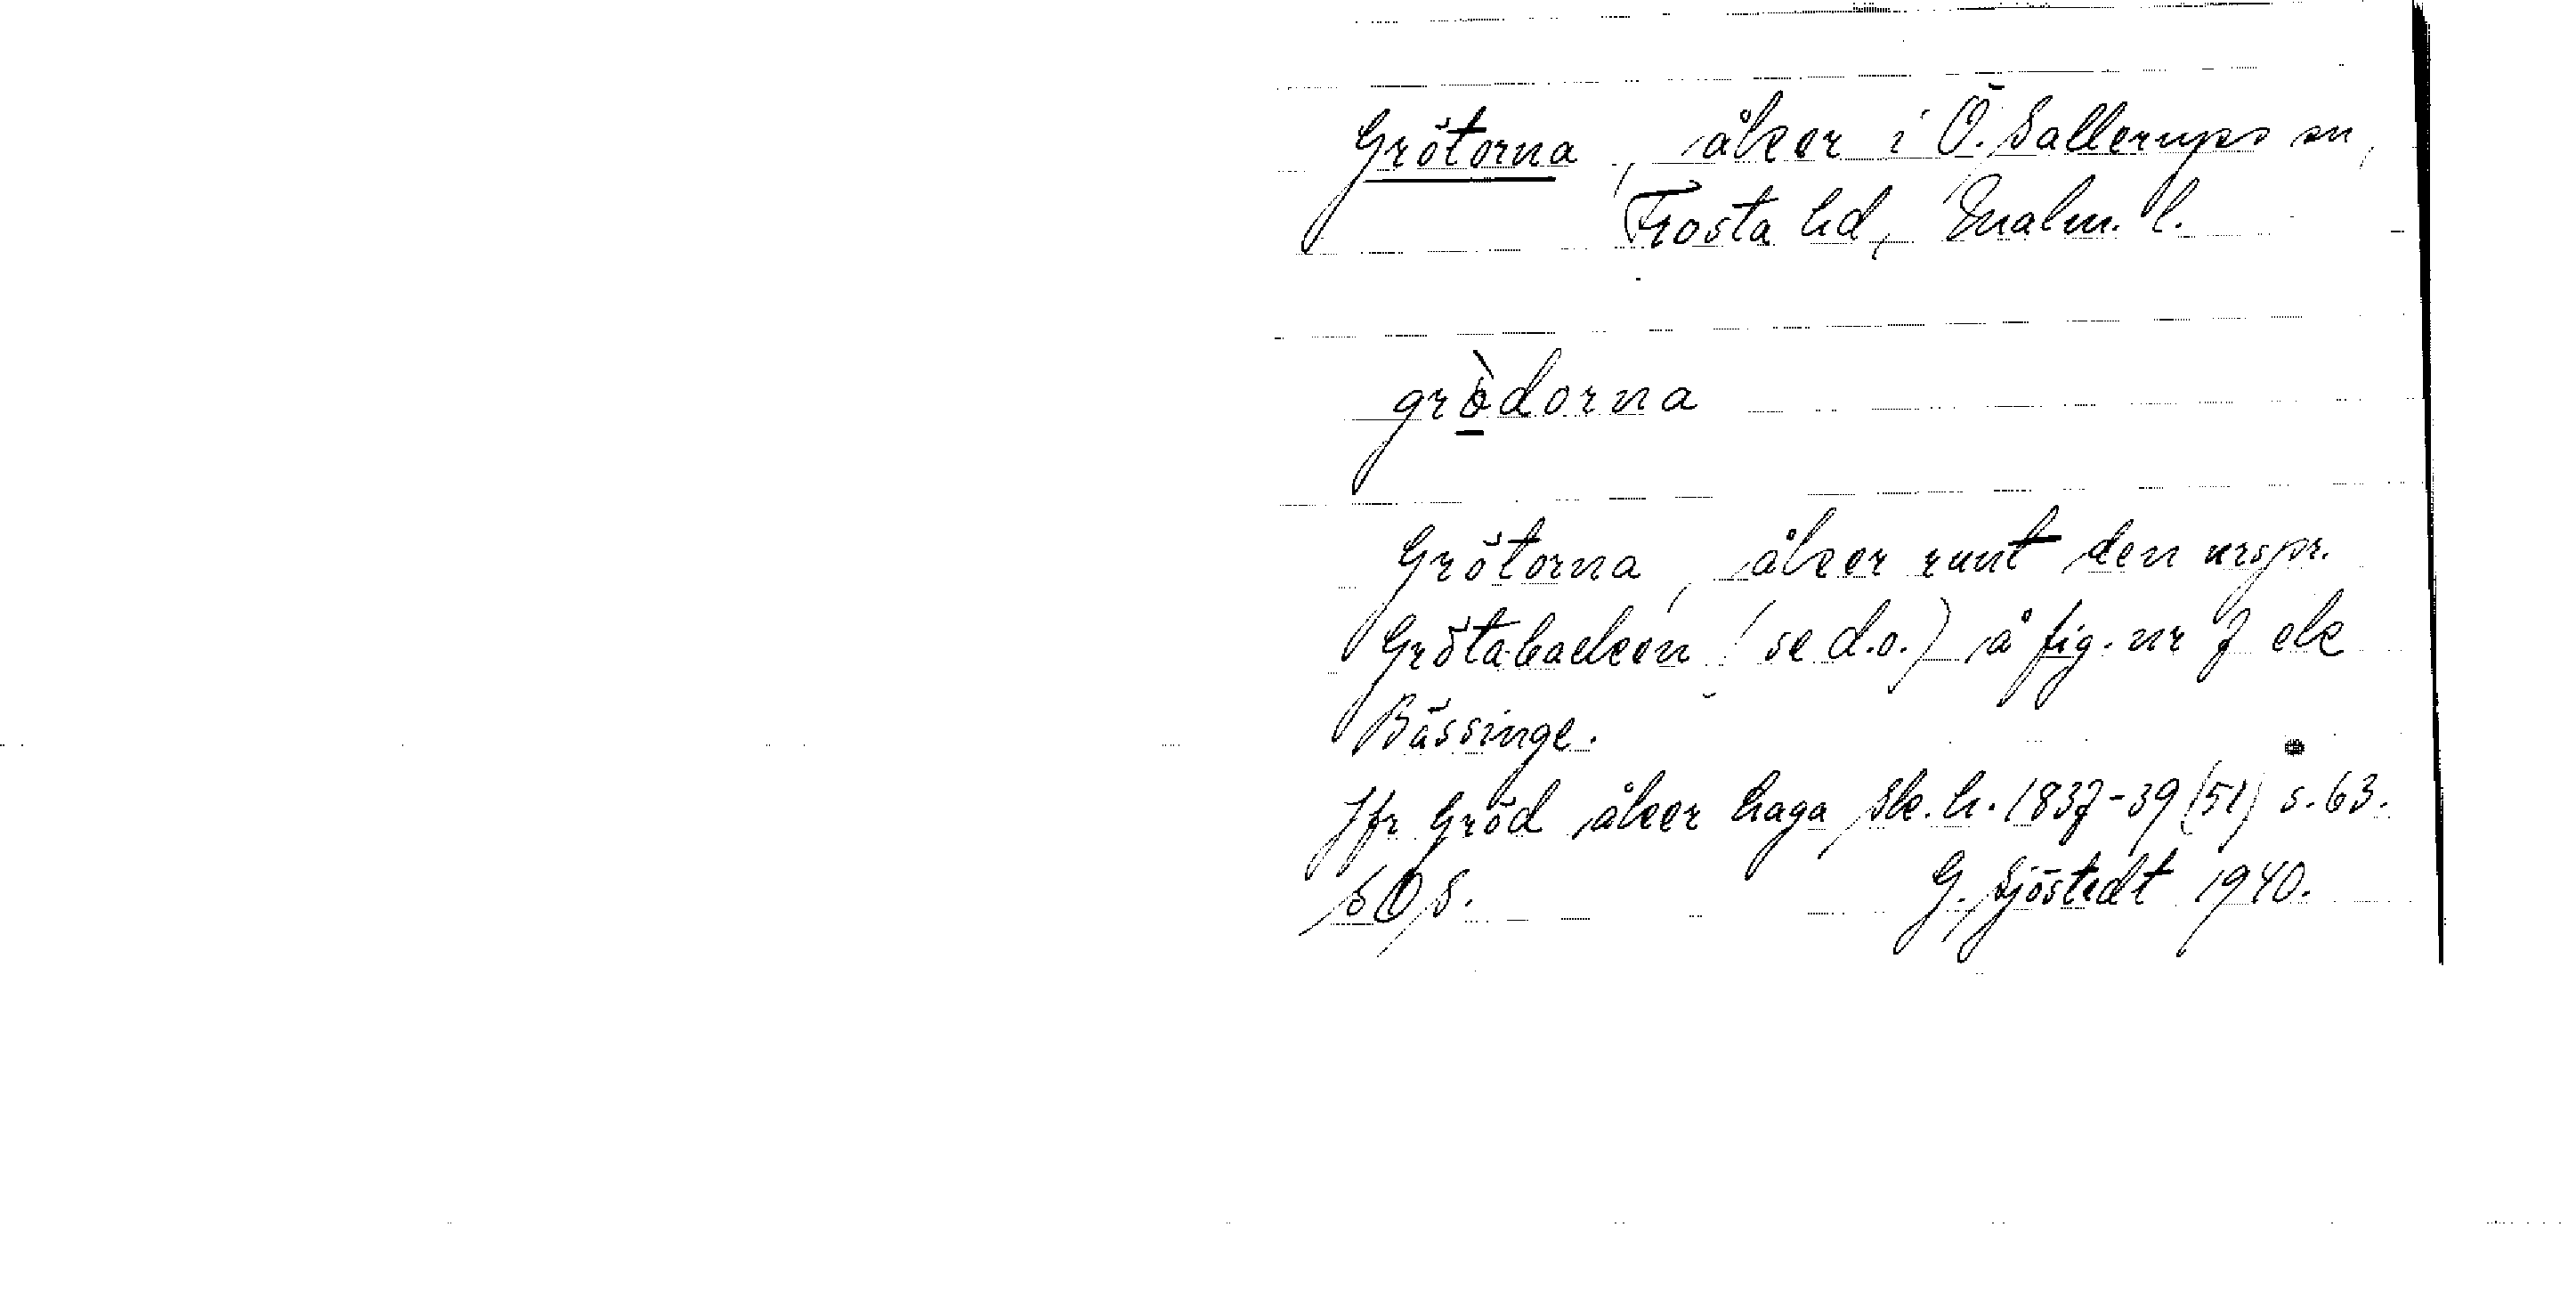 Grötorna, åker i Ö. Sallerups sn,
Frosta hd, Malm. l.
grödorna
Grötorna, åker runt den urspr.
Grötabacken (se d.o.) å fig. nr 7 ek
Bässinge.
Jfr Gröd åker haga Sk. h. 1837-39 (51) s. 63.
SOS. G. Sjöstedt 1940.